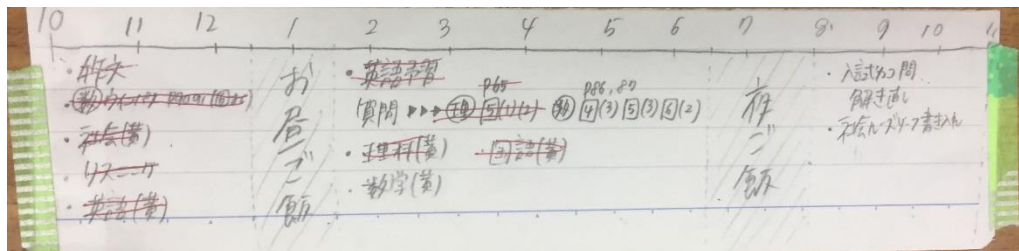 10 11 12 1 2 3 4 5 6 7 8 9 10 11
・作文
・社会(黄)
リスニング
・英語(黄)
お昼ご飯
・英語予習
p65 p86,87
質問 ▸▸▸ 理 5(1)(2) 数 4(3) 5(3) 6(2)
・理科(黄) ・国語(黄)
・数学(黄)
夜ご飯
・入試過去問
解き直し
・社会ルーズリーフ書き込み